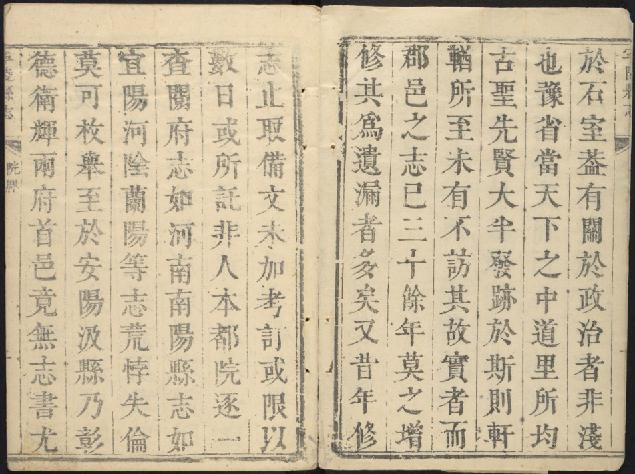 於石室葢有關於政治者非淺
也豫省當天下之中道里所均
古聖先賢大半發跡於斯則軒
輶所至未有不訪其故實者而
郡邑之志已三十餘年莫之增
修其爲遺漏者多矣又昔年修
志止取備文未加考訂或限以
數日或所託非人本都院逐一
查閱府志如河南南陽縣志如
宜陽河陰蘭陽等志荒悖失倫
莫可枚舉至於安陽汲縣乃彰
德衛輝兩府首邑竟無志書尤